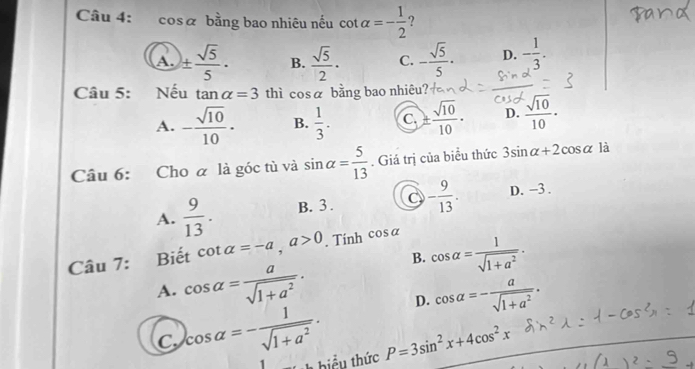 Câu 4: cos α bằng bao nhiêu nếu cot α = -1/2?
tan α
A. ±√5/5. B. √5/2. C. -√5/5. D. -1/3.
Câu 5: Nếu tan α = 3 thì cos α bằng bao nhiêu? tan α = sin α/cos α = 3
A. -√10/10. B. 1/3. C. ±√10/10. D. √10/10.
Câu 6: Cho α là góc tù và sin α = 5/13. Giá trị của biểu thức 3sin α + 2cos α là
A. 9/13. B. 3. C. -9/13. D. -3.
Câu 7: Biết cot α = -a, a > 0. Tính cos α
A. cos α = a/√(1+a²). B. cos α = 1/√(1+a²).
C. cos α = -1/√(1+a²). D. cos α = -a/√(1+a²).
biểu thức P = 3sin² x + 4cos² x